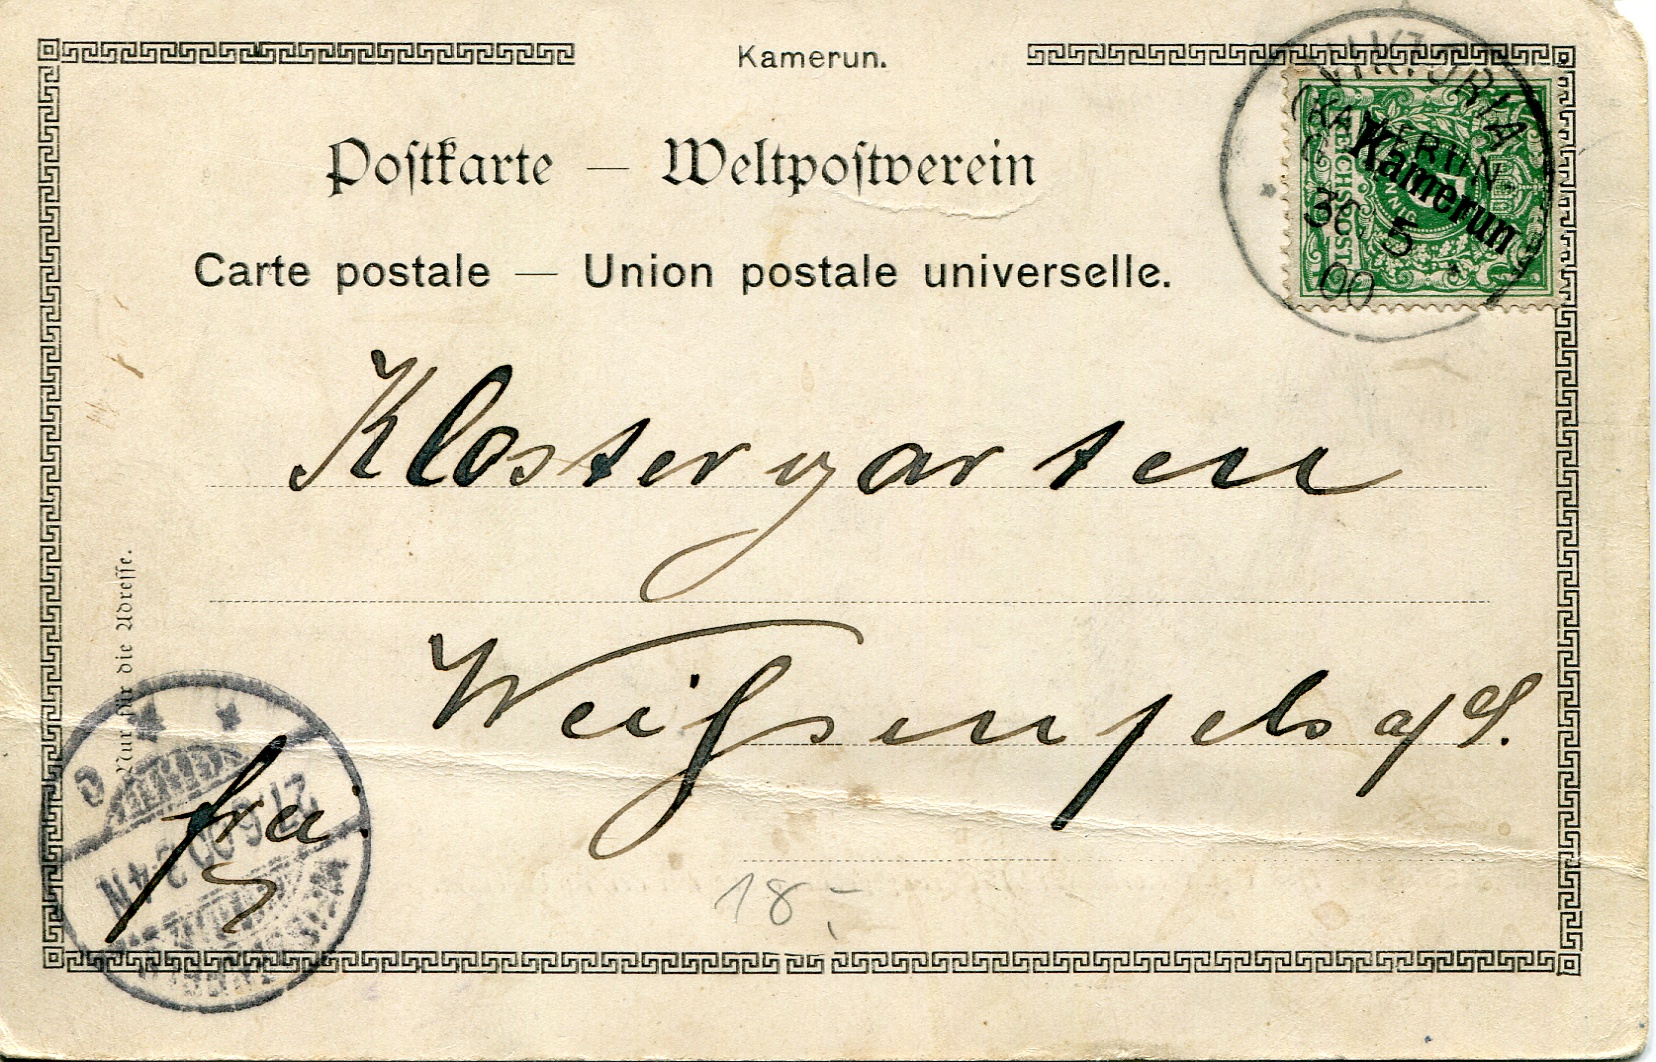 Kamerun.
Postkarte — Weltpostverein
Carte postale — Union postale universelle.
VIKTORIA
(KAMERUN.
5
00
REICHSPOST
5
Kamerun
Klostergarten
Weißenfels a/S.
Nur für die Adresse.
frei.
27.6.00
3-4N
18.-